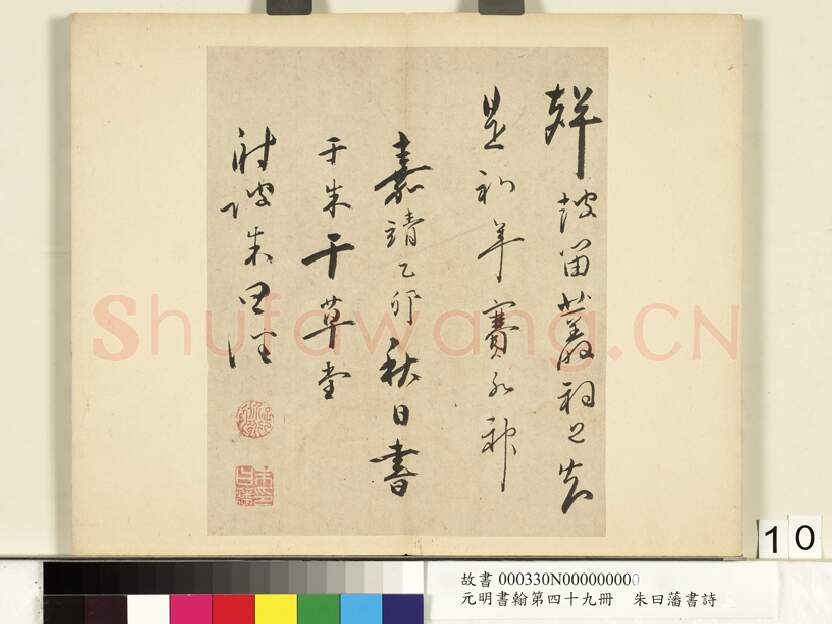 是初年賽水神
嘉靖乙卯秋日書
于朱干草堂
射陂朱曰藩
Shufawang.CN
10
故書 000330N000000000
元明書翰第四十九冊 朱曰藩書詩